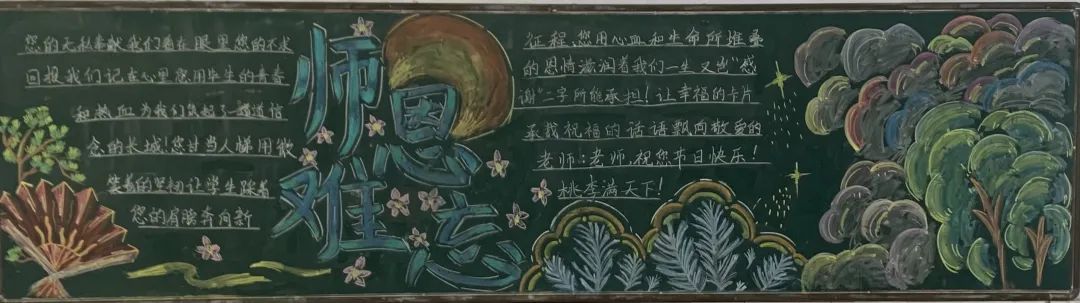 您的无私奉献我们看在眼里您的不求
回报我们记在心里您用毕生的青春
和热血为我们筑起了一道道信
念的长城!您甘当人梯用微
笑着的坚韧让学生踩着
您的肩膀奔向新
师恩
难忘
征程,您用心血和生命所堆叠
的恩情滋润着我们一生又岂“感
谢”二字所能承担!让幸福的卡片
承载祝福的话语飘向敬爱的
老师:老师,祝您节日快乐!
桃李满天下!